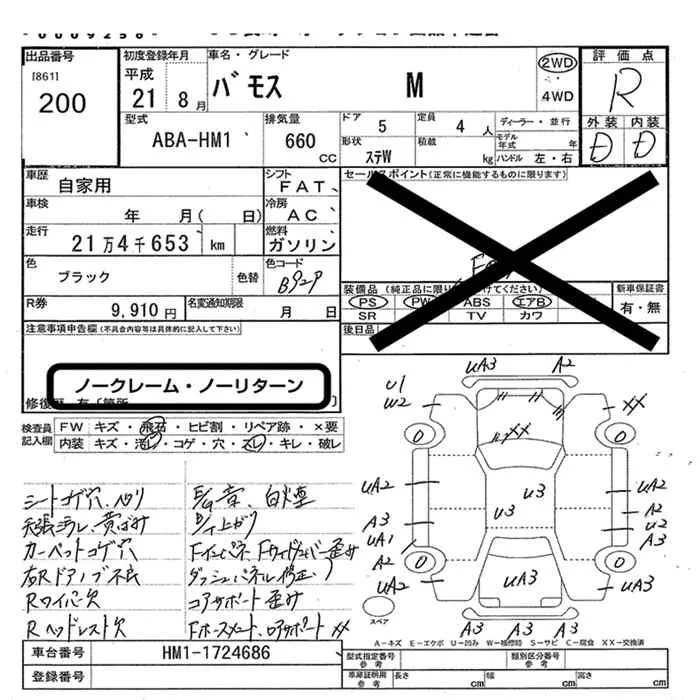 出品番号
[861]
200
初度登録年月
平成
21
8月
車名・グレード
バモス M
2WD
4WD
評価点
R
外装 内装
D D
型式
ABA-HM1
排気量
660
CC
ドア
5
定員
4
人
ディーラー・並行
形状
ステW
積載
kg
モデル
年式
年
ハンドル 左・右
車歴
自家用
シフト
FAT
セールスポイント(正常に機能するものに限ります)
車検
年 月( 日)
冷房
AC
走行
21万4千653 km
燃料
ガソリン
色
ブラック
色替
色コード
B92P
装備品
PS PW ABS エアB
SR TV カワ
新車保証書
有・無
R券
9,910円
名変通知期限
月 日
後日品
注意事項申告欄(不具合内容等は具体的に記入して下さい)
ノークレーム・ノーリターン
検査員
記入欄
FW キズ・飛石・ヒビ割・リペア跡・×要
内装 キズ・汚レ・コゲ・穴・スレ・キレ・破レ
シートコゲ穴、ヘリ
E/G音、白煙
カーペットコゲ穴
右Rドアノブ不良
ダッシュパネル修正
Rワイパー欠
コアサポート歪み
Rヘッドレスト欠
UA3 A2
U1
W2
XX
0 0
XX
UA2
U3
UA2
A2
A3
U3
U2
UA1
A3
A2
0 0
UA2
UA3
UA3
スペア
A3 A3
A-キズ E-エクボ U-凹み W-補修時 S-サビ C-腐食 XX-交換済
車台番号
HM1-1724686
型式指定番号
参考
類別区分番号
参考
登録番号
車庫証明用
参考
長さ
cm
幅
cm
高さ
cm